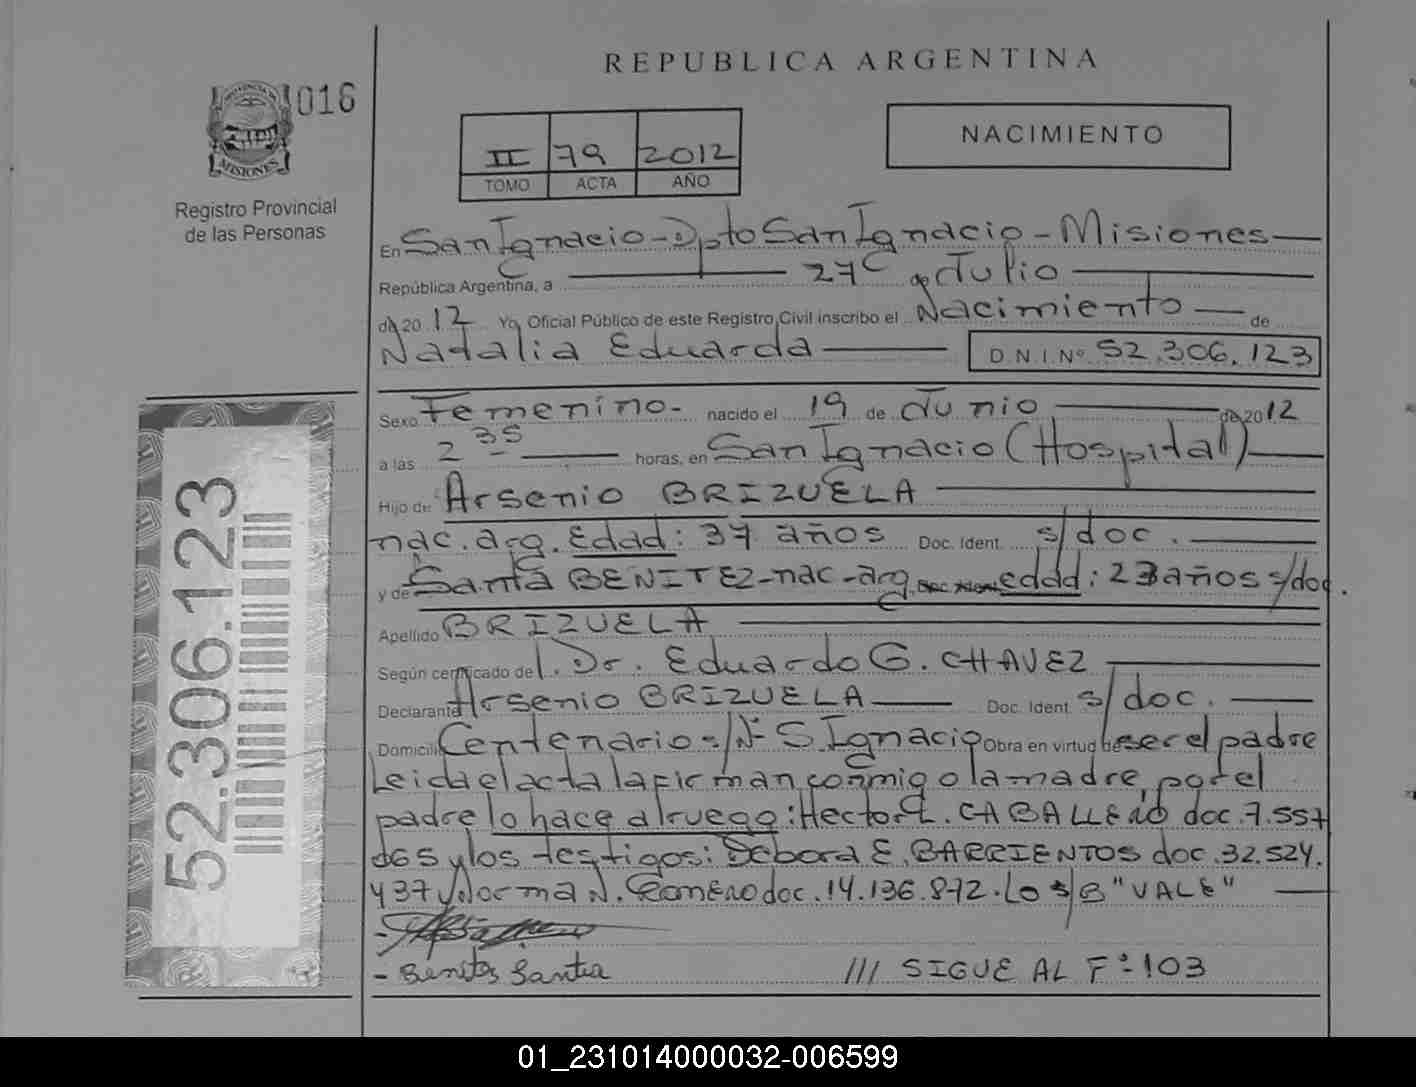 REPUBLICA ARGENTINA
016
PROVINCIA DE
MISIONES
Registro Provincial
de las Personas
II 79 2012
TOMO ACTA AÑO
NACIMIENTO
En San Ignacio - Dpto San Ignacio - Misiones
República Argentina, a 27 de Julio
de 20 12 Yo, Oficial Público de este Registro Civil inscribo el Nacimiento de
Natalia Eduarda D.N.I. Nº 52.306.123
Sexo Femenino. nacido el 19 de Junio de 20 12
a las 2 35 horas, en San Ignacio (Hospital)
Hijo de Arsenio BRIZUELA
nac. arg. Edad: 37 años Doc. Ident. s/doc.
y de Santa BENITEZ - nac - arg. Doc. Ident. edad: 23 años s/doc.
Apellido BRIZUELA
Según certificado del. Dr. Eduardo G. CHAVEZ
Declarante Arsenio BRIZUELA Doc. Ident. s/doc.
Domicilio Centenario s/Nº S. Ignacio Obra en virtud de ser el padre
Leida el acta la firman conmigo la madre, por el
padre lo hace a ruego: Hector CABALLERO doc. 7.557
065 y los testigos: Debora E. BARRIENTOS doc. 32.524.
437 y Norma N. ROMERO doc. 14.136.872. Lo s/B "VALE"
- Benites Santa /// SIGUE AL Fº 103
52.306.123
01_231014000032-006599